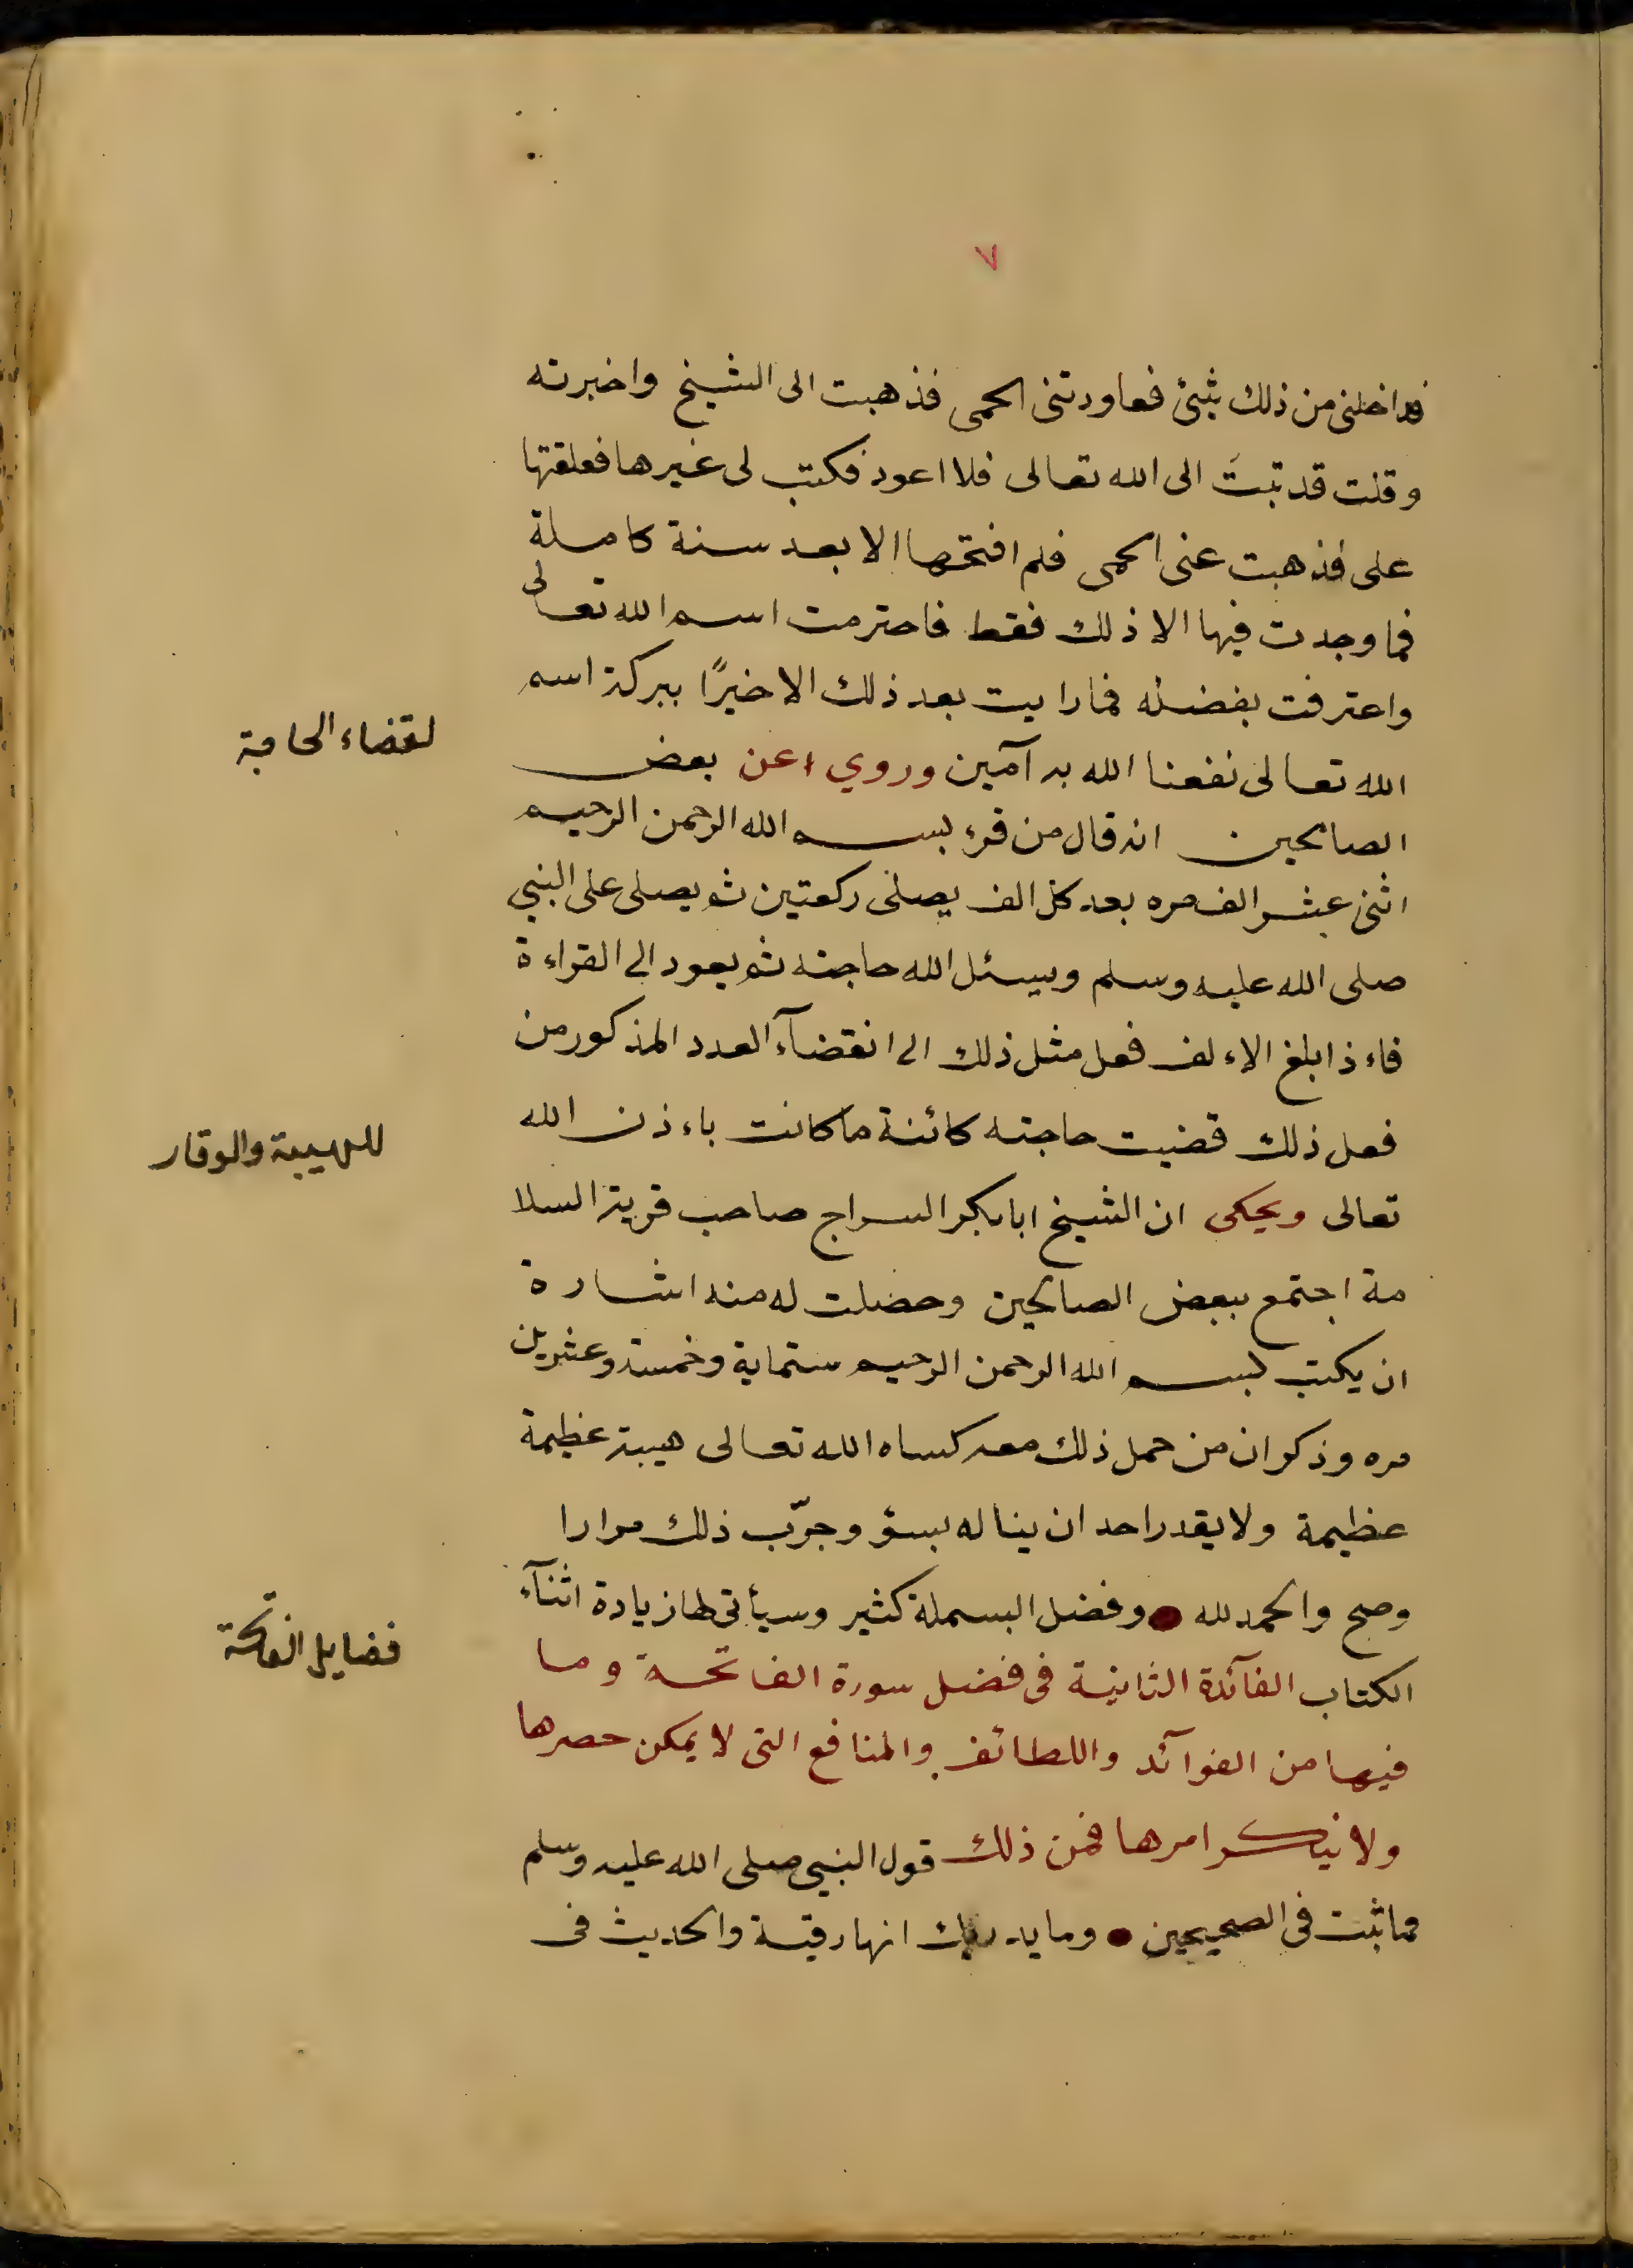 ٧
فداخلنى من ذلك شئ فعاودتنى الحمى فذهبت الى الشيخ واخبرته
وقلت قد تبتَ الى الله تعالى فلا اعود فكتب لى غيرها فعلقتها
على فذهبت عنى الحمى فلم افتحها الا بعد سنة كاملة
فما وجدت فيها الا ذلك فقط فاحترمت اسم الله تعالى
واعترفت بفضله فما رايت بعد ذلك الا خيرًا ببركة اسم
الله تعالى نفعنا الله به آمين وروي عن بعض
لقضاء الحاجة
الصالحين انه قال من قرء بسم الله الرحمن الرحيم
اثنى عشر الف مره بعد كل الف يصلى ركعتين ثم يصلى على النبي
صلى الله عليه وسلم ويسئل الله حاجته ثم يعود الى القراءة
فاءذا بلغ الاءلف فعل مثل ذلك الى انقضآء العدد المذكور من
فعل ذلك قضيت حاجته كائنة ما كانت باءذن الله
للهيبة والوقار
تعالى ويحكى ان الشيخ ابا بكر السراج صاحب قرية السلا
مة اجتمع ببعض الصالحين وحصلت له منه اشارة
ان يكتب بسم الله الرحمن الرحيم ستماية وخمسة وعشرين
مره وذكر ان من حمل ذلك معه كساه الله تعالى هيبة عظيمة
عظيمة ولا يقدر احد ان يناله بسؤ وجرّب ذلك مرارا
وصح والحمد لله وفضل البسملة كثير وسيأتى لها زيادة اثنآء
فضايل الفاتحة
الكتاب الفآئدة الثانية فى فضل سورة الفاتحة وما
فيها من الفوآئد واللطائف والمنافع التى لا يمكن حصرها
ولا ينكر امرها فمن ذلك قول النبي صلى الله عليه وسلم
مما ثبت فى الصحيحين وما يدريك انها رقية والحديث فى